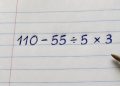 110 - 55 ÷ 5 × 3